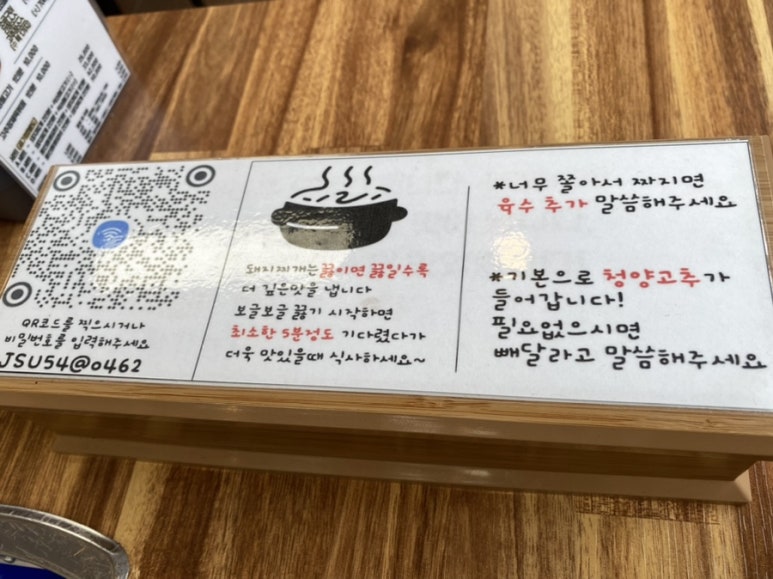 QR코드를 찍으시거나
비밀번호를 입력해주세요
JSU54@0462
돼지찌개는 끓이면 끓일수록
더 깊은맛을 냅니다
보글보글 끓기 시작하면
최소한 5분정도 기다렸다가
더욱 맛있을때 식사하세요~
*너무 쫄아서 짜지면
육수 추가 말씀해주세요
*기본으로 청양고추가
들어갑니다!
필요없으시면
빼달라고 말씀해주세요